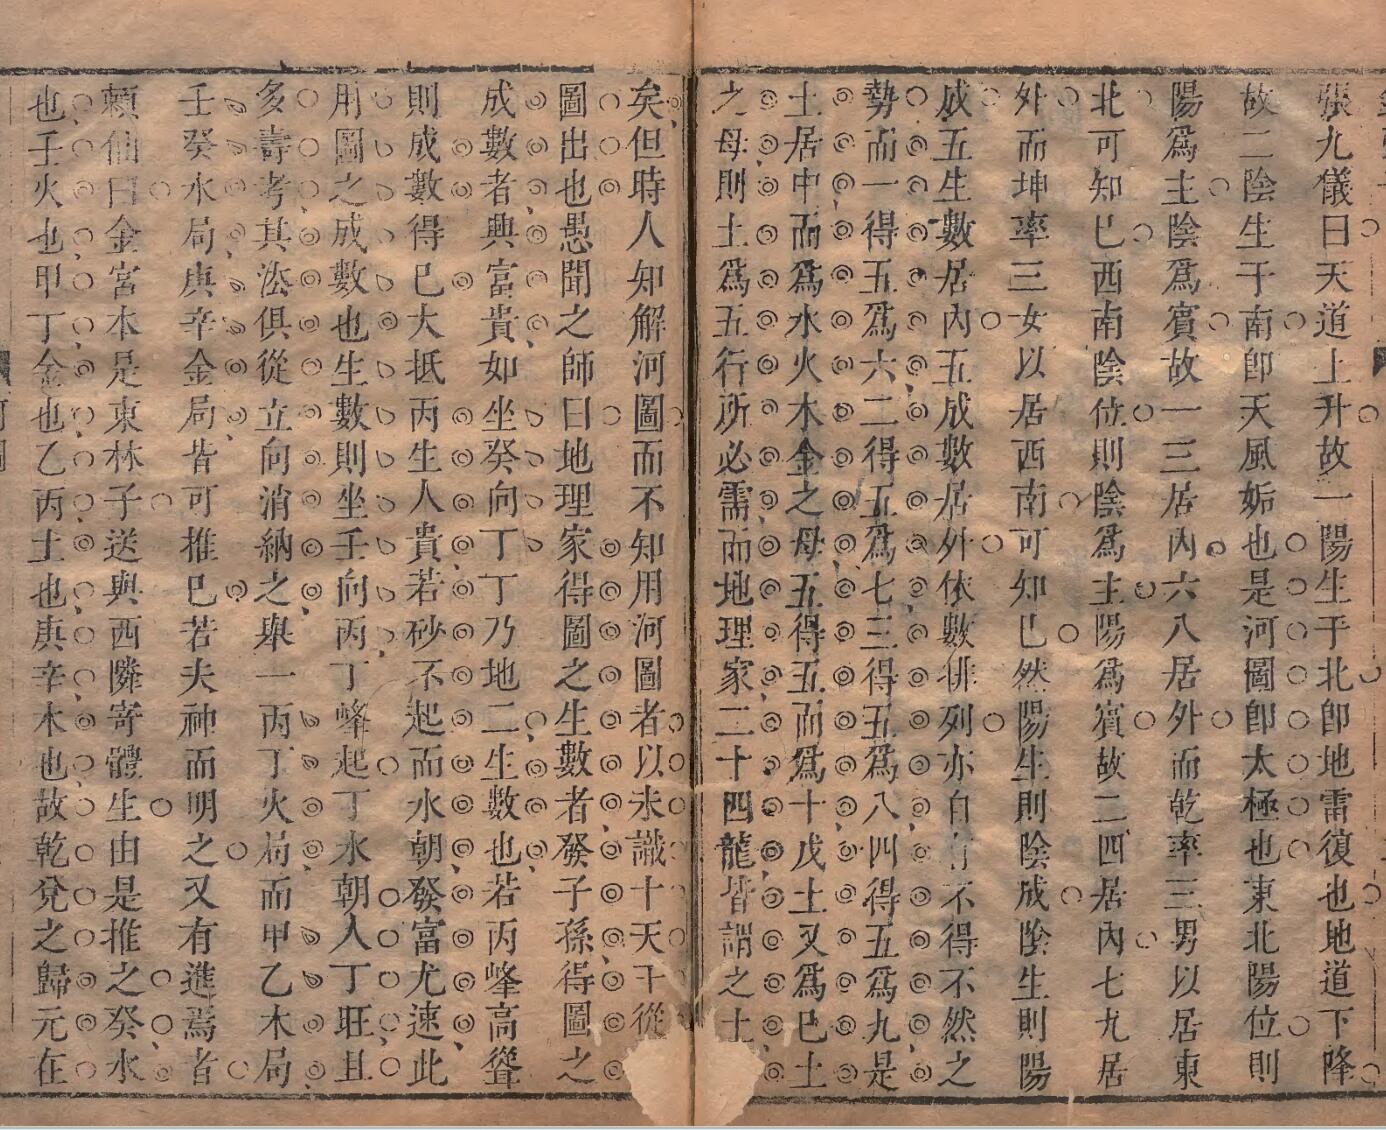 張九儀曰天道上升故一陽生于北卽地雷復也地道下降
故二陰生于南卽天風姤也是河圖卽太極也東北陽位則
陽爲主陰爲賓故一三居內六八居外而乾率三男以居東
北可知已西南陰位則陰爲主陽爲賓故二四居內七九居
外而坤率三女以居西南可知已然陽生則陰成陰生則陽
成五生數居內五成數居外依數排列亦自有不得不然之
勢而一得五爲六二得五爲七三得五爲八四得五爲九是
土居中而爲水火木金之母五得五而爲十戊土又爲巳土
之母則土爲五行所必需而地理家二十四龍皆謂之土
矣但時人知解河圖而不知用河圖者以未識十天干從
圖出也愚聞之師曰地理家得圖之生數者發子孫得圖之
成數者興富貴如坐癸向丁丁乃地二生數也若丙峰高聳
則成數得巳大抵丙生人貴若砂不起而水朝發富尤速此
用圖之成數也生數則坐壬向丙丁峰起丁水朝人丁旺且
多壽考其法俱從立向消納之舉一丙丁火局而甲乙木局
壬癸水局庚辛金局皆可推巳若夫神而明之又有進焉者
賴仙曰金宮木是東林子送與西隣寄體生由是推之癸水
也壬火也甲丁金也乙丙土也庚辛木也故乾兌之歸元在